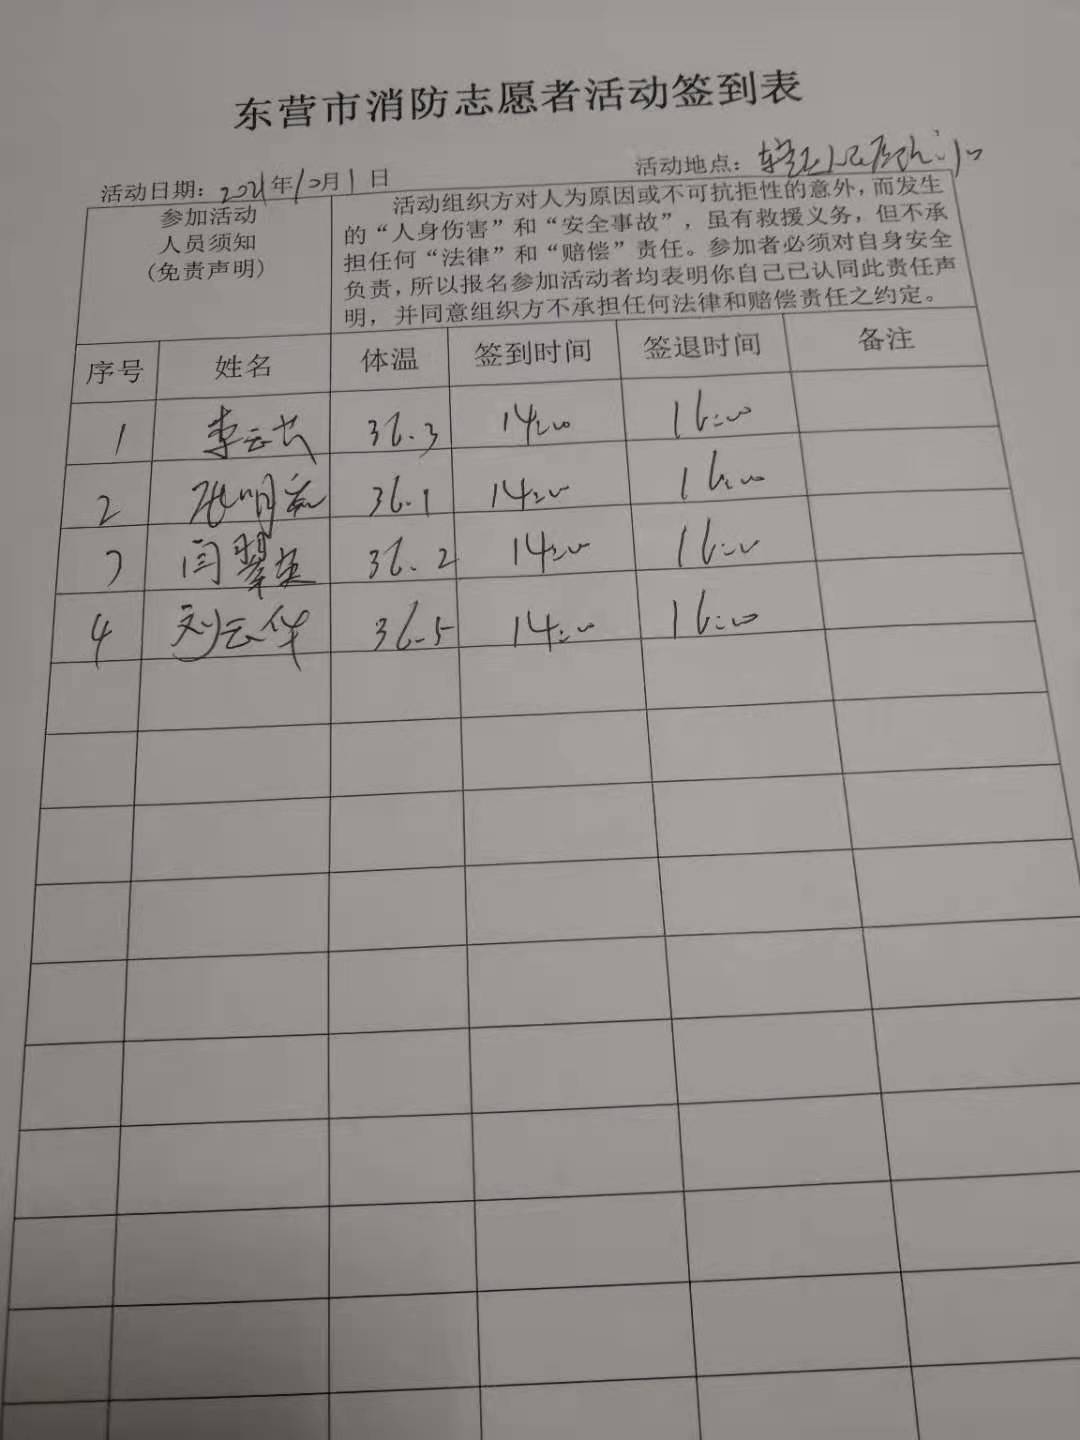 东营市消防志愿者活动签到表
活动日期：2021年10月1日 活动地点：东营区人民医院门口
参加活动
人员须知
(免责声明)
活动组织方对人为原因或不可抗拒性的意外，而发生
的“人身伤害”和“安全事故”，虽有救援义务，但不承
担任何“法律”和“赔偿”责任。参加者必须对自身安全
负责，所以报名参加活动者均表明你自己已认同此责任声
明，并同意组织方不承担任何法律和赔偿责任之约定。
序号 姓名 体温 签到时间 签退时间 备注
1 李云长 36.3 14:00 16:00
2 36.1 14:00 16:00
3 闫翠英 36.2 14:00 16:00
4 刘云华 36.5 14:00 16:00